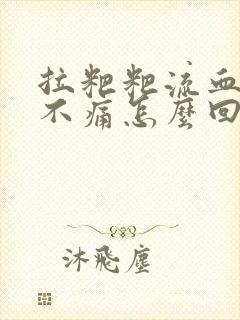 拉粑粑流血
不痛怎麼回
沐飛塵